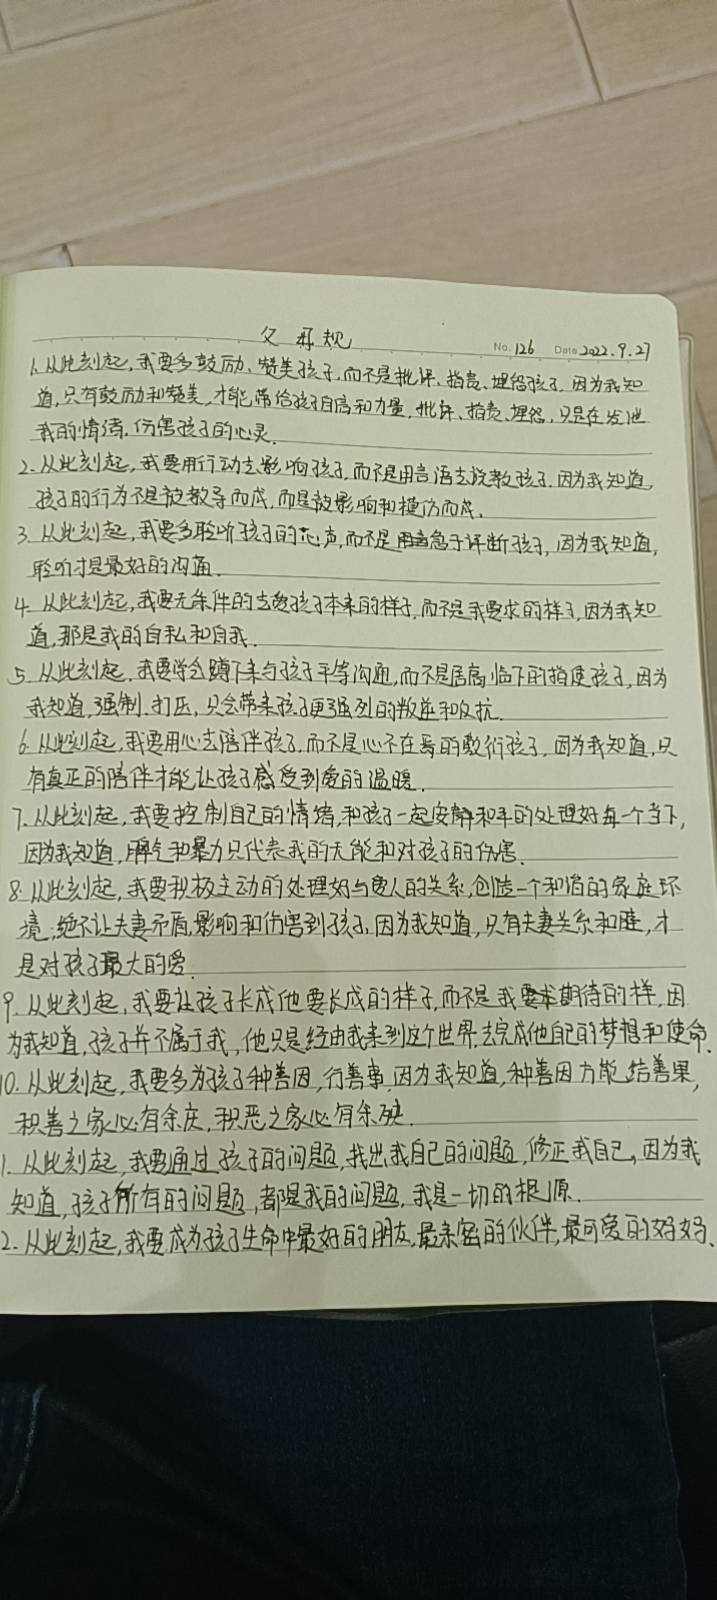 父母规
No. 126 Date 2022.9.27
1. 从此刻起,我要多鼓励、赞美孩子,而不是批评、指责、埋怨孩子,因为我知
道,只有鼓励和赞美,才能带给孩子自信和力量,批评、指责、埋怨,只是在发泄
我的情绪,伤害孩子的心灵.
2. 从此刻起,我要用行动去影响孩子,而不是用言语去说教孩子,因为我知道,
孩子的行为不是被教导而成,而是被影响和模仿而成.
3. 从此刻起,我要多聆听孩子的心声,而不是急于评断孩子,因为我知道,
聆听才是最好的沟通.
4. 从此刻起,我要无条件的去爱孩子本来的样子,而不是我要求的样子,因为我知
道,那是我的自私和自我.
5. 从此刻起,我要学会蹲下来与孩子平等沟通,而不是居高临下的指使孩子,因为
我知道,强制、打压,只会带来孩子更强烈的叛逆和反抗.
6. 从此刻起,我要用心去陪伴孩子,而不是心不在焉的敷衍孩子,因为我知道,只
有真正的陪伴才能让孩子感受到爱的温暖.
7. 从此刻起,我要控制自己的情绪,和孩子一起安静和平的处理好每一个当下,
因为我知道,脾气和暴力只代表我的无能和对孩子的伤害.
8. 从此刻起,我要积极主动的处理好与爱人的关系,创造一个和谐的家庭环
境,绝不让夫妻矛盾,影响和伤害到孩子,因为我知道,只有夫妻关系和睦,才
是对孩子最大的爱.
9. 从此刻起,我要让孩子长成他要长成的样子,而不是我期待的样,因
为我知道,孩子并不属于我,他只是经由我来到这个世界,去完成他自己的梦想和使命.
10. 从此刻起,我要多为孩子种善因,行善事,因为我知道,种善因方能结善果,
积善之家必有余庆,积恶之家必有余殃.
1. 从此刻起,我要通过孩子的问题,找出我自己的问题,修正我自己,因为我
知道,孩子所有的问题,都是我的问题,我是一切的根源.
2. 从此刻起,我要成为孩子生命中最好的朋友,最亲密的伙伴,最可爱的妈妈、